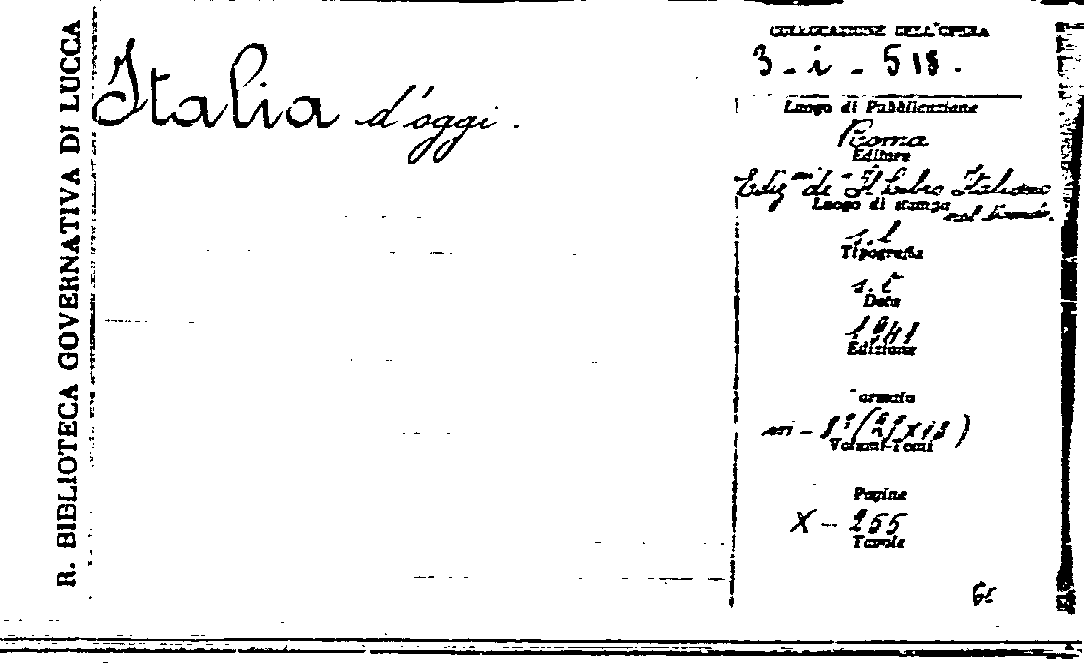 R. BIBLIOTECA GOVERNATIVA DI LUCCA
Italia d'oggi.
COLLOCAZIONE DELL'OPERA
3-i-518.
Luogo di Pubblicazione
Roma
Editore
Ediz ni de "Il Libro Italiano
nel
Luogo di stampa
s.l
Tipografia
s.t
Data
1941
Edizione
Formato
in-8° (21x15)
Volumi-Tomi
Pagine
X-255
Tavole